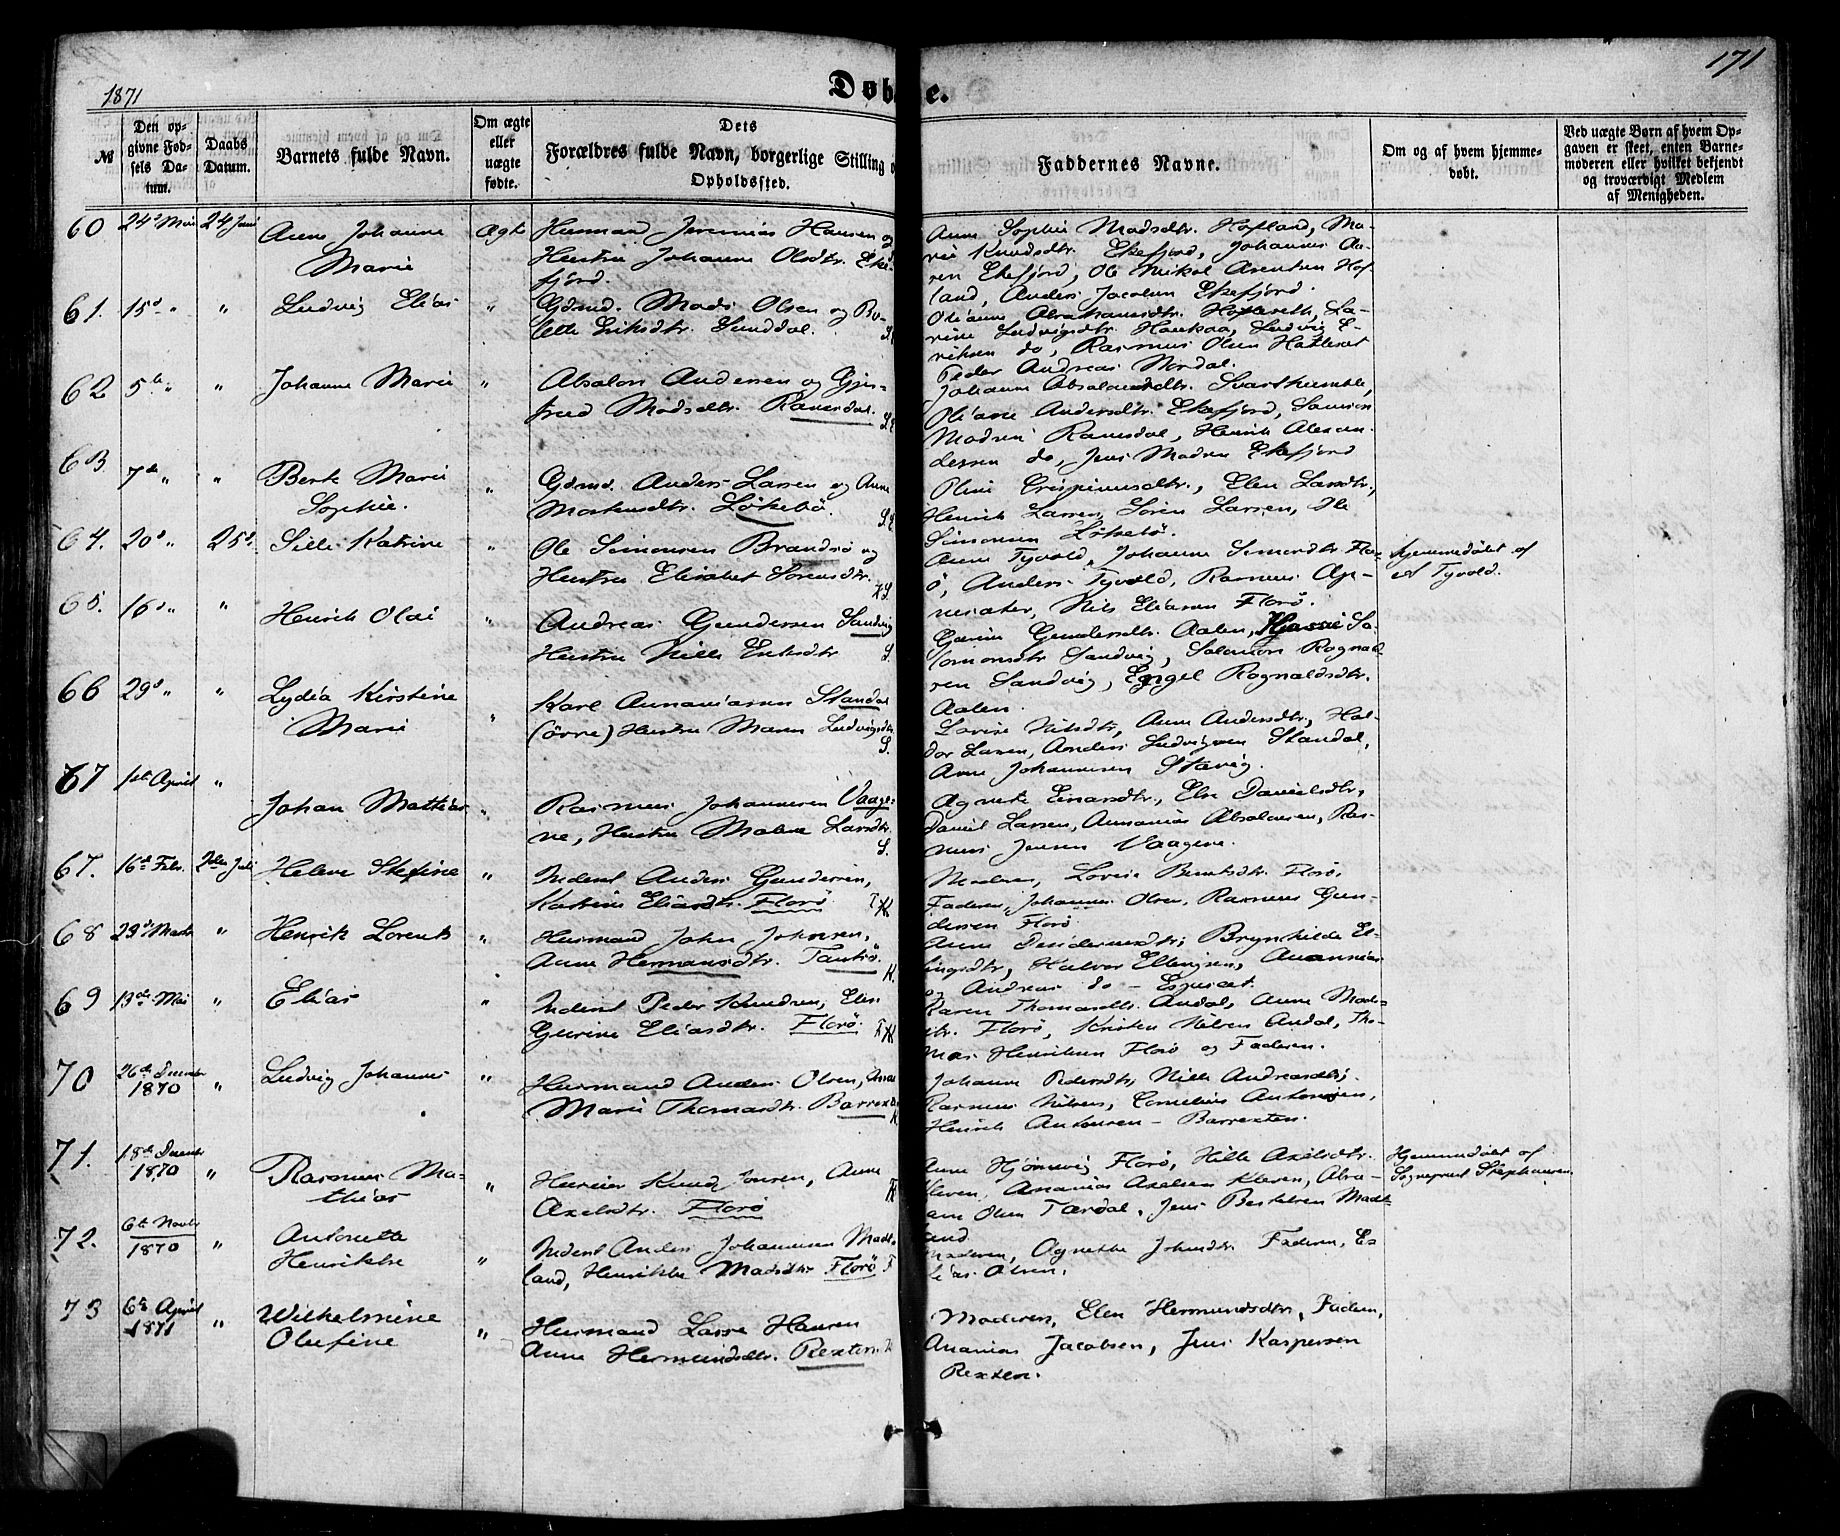 1871
Døb
e.
171
№
Den op-
givne Fød-
sels Da-
tum.
Daabs
Datum.
Barnets fulde Navn.
Om ægte
eller
uægte
fødte.
Dets
Forældres fulde Navn, borgerlige Stilling o
Opholdssted.
Faddernes Navne.
Om og af hvem hjemme-
døbt.
Ved uægte Børn af hvem Op-
gaven er skeet, enten Barne-
moderen eller hvilket bekjendt
og troværdigt Medlem
af Menigheden.
60 24de Mai 24 Juni Anne Johanne
Marie
Ægte
Huusmand Jeremias Hansen og
Hustru Johanne Olsdtr. Eke-
fjord.
Anne Sophie Madsdtr. Hofland, Ma-
rie Knudsdtr. Ekefjord, Johannes An-
sen Ekefjord, Ole Nikol Arentsen Hof
land, Anders Jacobsen Ekefjord.
61. 15de " " Ludvig Elias "
Gdmd. Mads Olsen og Bo-
lette Eriksdtr. Sunddal.
Oliane Abrahamsdtr. Hatleseth, La-
vine Ludvigsdtr. Haukaa, Ludvig E-
riksen do, Rasmus Olsen Hatleset
Peder Andreas Nordal.
62 5te " " Johanne Marie "
Absalon Andersen og Gjer-
trud Madsdtr. Ramsdal.
Johanne Absalonsdtr. Svarthumle,
Oliane Andersdtr. Ekefjord, Samson
Madsen Ramsdal, Henrik Alexan-
dersen do, Jens Madsen Ekefjord
63 7de " " Berte Marie
Sophie.
"
Gdmd. Anders Larsen og Anne
Markusdtr. Løkebø.
Oline Crispinusdtr., Elen Larsdtr.,
Henrik Larsen, Sören Larsen, Ole
Simonsen Løkebø.
64. 20de " 25de Sille Katrine "
Ole Simonsen Brandsø og
Hustru Elisabet Sørensdtr.
Anne Tyvold, Johanne Simonsdtr. Flo-
ø, Anders Tyvold, Rasmus Ap-
nesæter, Nils Eliasen Florø.
Hjemmedøbt af
A Tyvold.
65. 16de " " Henrik Olai "
Andreas Gundersen Sandvig
Hustru Nille Eriksdtr
S.
Gurine Gundersdtr. Aalen, Sa-
lomonsdtr Sandvig, Salomon Rognald-
sen Sandvig, Engel Rognaldsdtr.
Aalen.
66 29de " " Lydia Kirstine
Marie
"
Karl Annaniasen Standal
(øvre) Hustru Maren Ludvigsdtr.
S.
Lovise Nilsdtr, Anne Andersdtr, Hal-
dor Larsen, Anders Ludvigsen Standal,
Arne Johannesen Stavig.
67 1ste April " Johan Mathias "
Rasmus Johannesen Vaage-
ne, Hustru Malene Larsdtr.
S.
Agnete Einarsdtr, Else Danielsdtr,
Daniel Larsen, Annanias Absalonsen, Ras-
mus Jensen Vaagene.
67. 16de Febr. 2den Juli Helene Stefine "
Inderst Anders Gundersen,
Katrine Eliasdtr. Florø
Moderen, Lovise Berntsdtr. Florø,
Faderen, Johannes Olsen, Rasmus Gun-
dersen Florø
68 29de Marts " Henrik Lorents "
Huusmand John Johnsen,
Anne Hermansdtr. Tansø.
K.
Anne Desideriusdtr, Brynhilde El-
lingsdtr, Halvor Ellingsen, Ananias
og Andreas do - Espeset.
69 13de Mai " Elias "
Inderst Peder Knudsen, Elen
Gurine Eliasdtr. Florø.
Karen Thomasdtr. Andal, Anne Mads-
dtr. Florø, Kristen Nilsen Andal, Tho-
mas Henriksen Florø og Faderen.
70 26de Decembr
1870
" Ludvig Johannes "
Huusmand Anders Olsen, Anne
Marie Thomasdtr. Barrexten
K
Johanne Pedersdtr, Nille Andreasdtr,
Rasmus Nilsen, Cornelius Antonsen,
Henrik Antonsen - Barrexten.
71. 18de Decembr
1870
" Rasmus Ma-
thias
"
Huseier Knud Jonsen, Anne
Axelsdtr. Florø
Anne Hjørnevig Florø, Nille Axelsdtr.
Kleven, Ananias Axelsen Kleven, Abra-
ham Olsen Tærdal, Jens Bertelsen Madt-
land
Hjemmedøbt af
Sogneprest Stephansen
72. 6te Novbr
1870
" Antonette
Henrikke
"
Inderst Anders Johannesen Madt-
land, Henrikke Madsdtr Florø
Moderen, Agnethe Johnsdtr Faderen, E-
lias Olsen.
73 6te April
1871
" Wilhelmine
Olufine
"
Huusmand Lasse Hansen
Anne Hermundsdtr. Rexten.
Moderen, Elen Hermundsdtr, Faderen,
Ananias Jacobsen, Jens Kaspersen
Rexten.